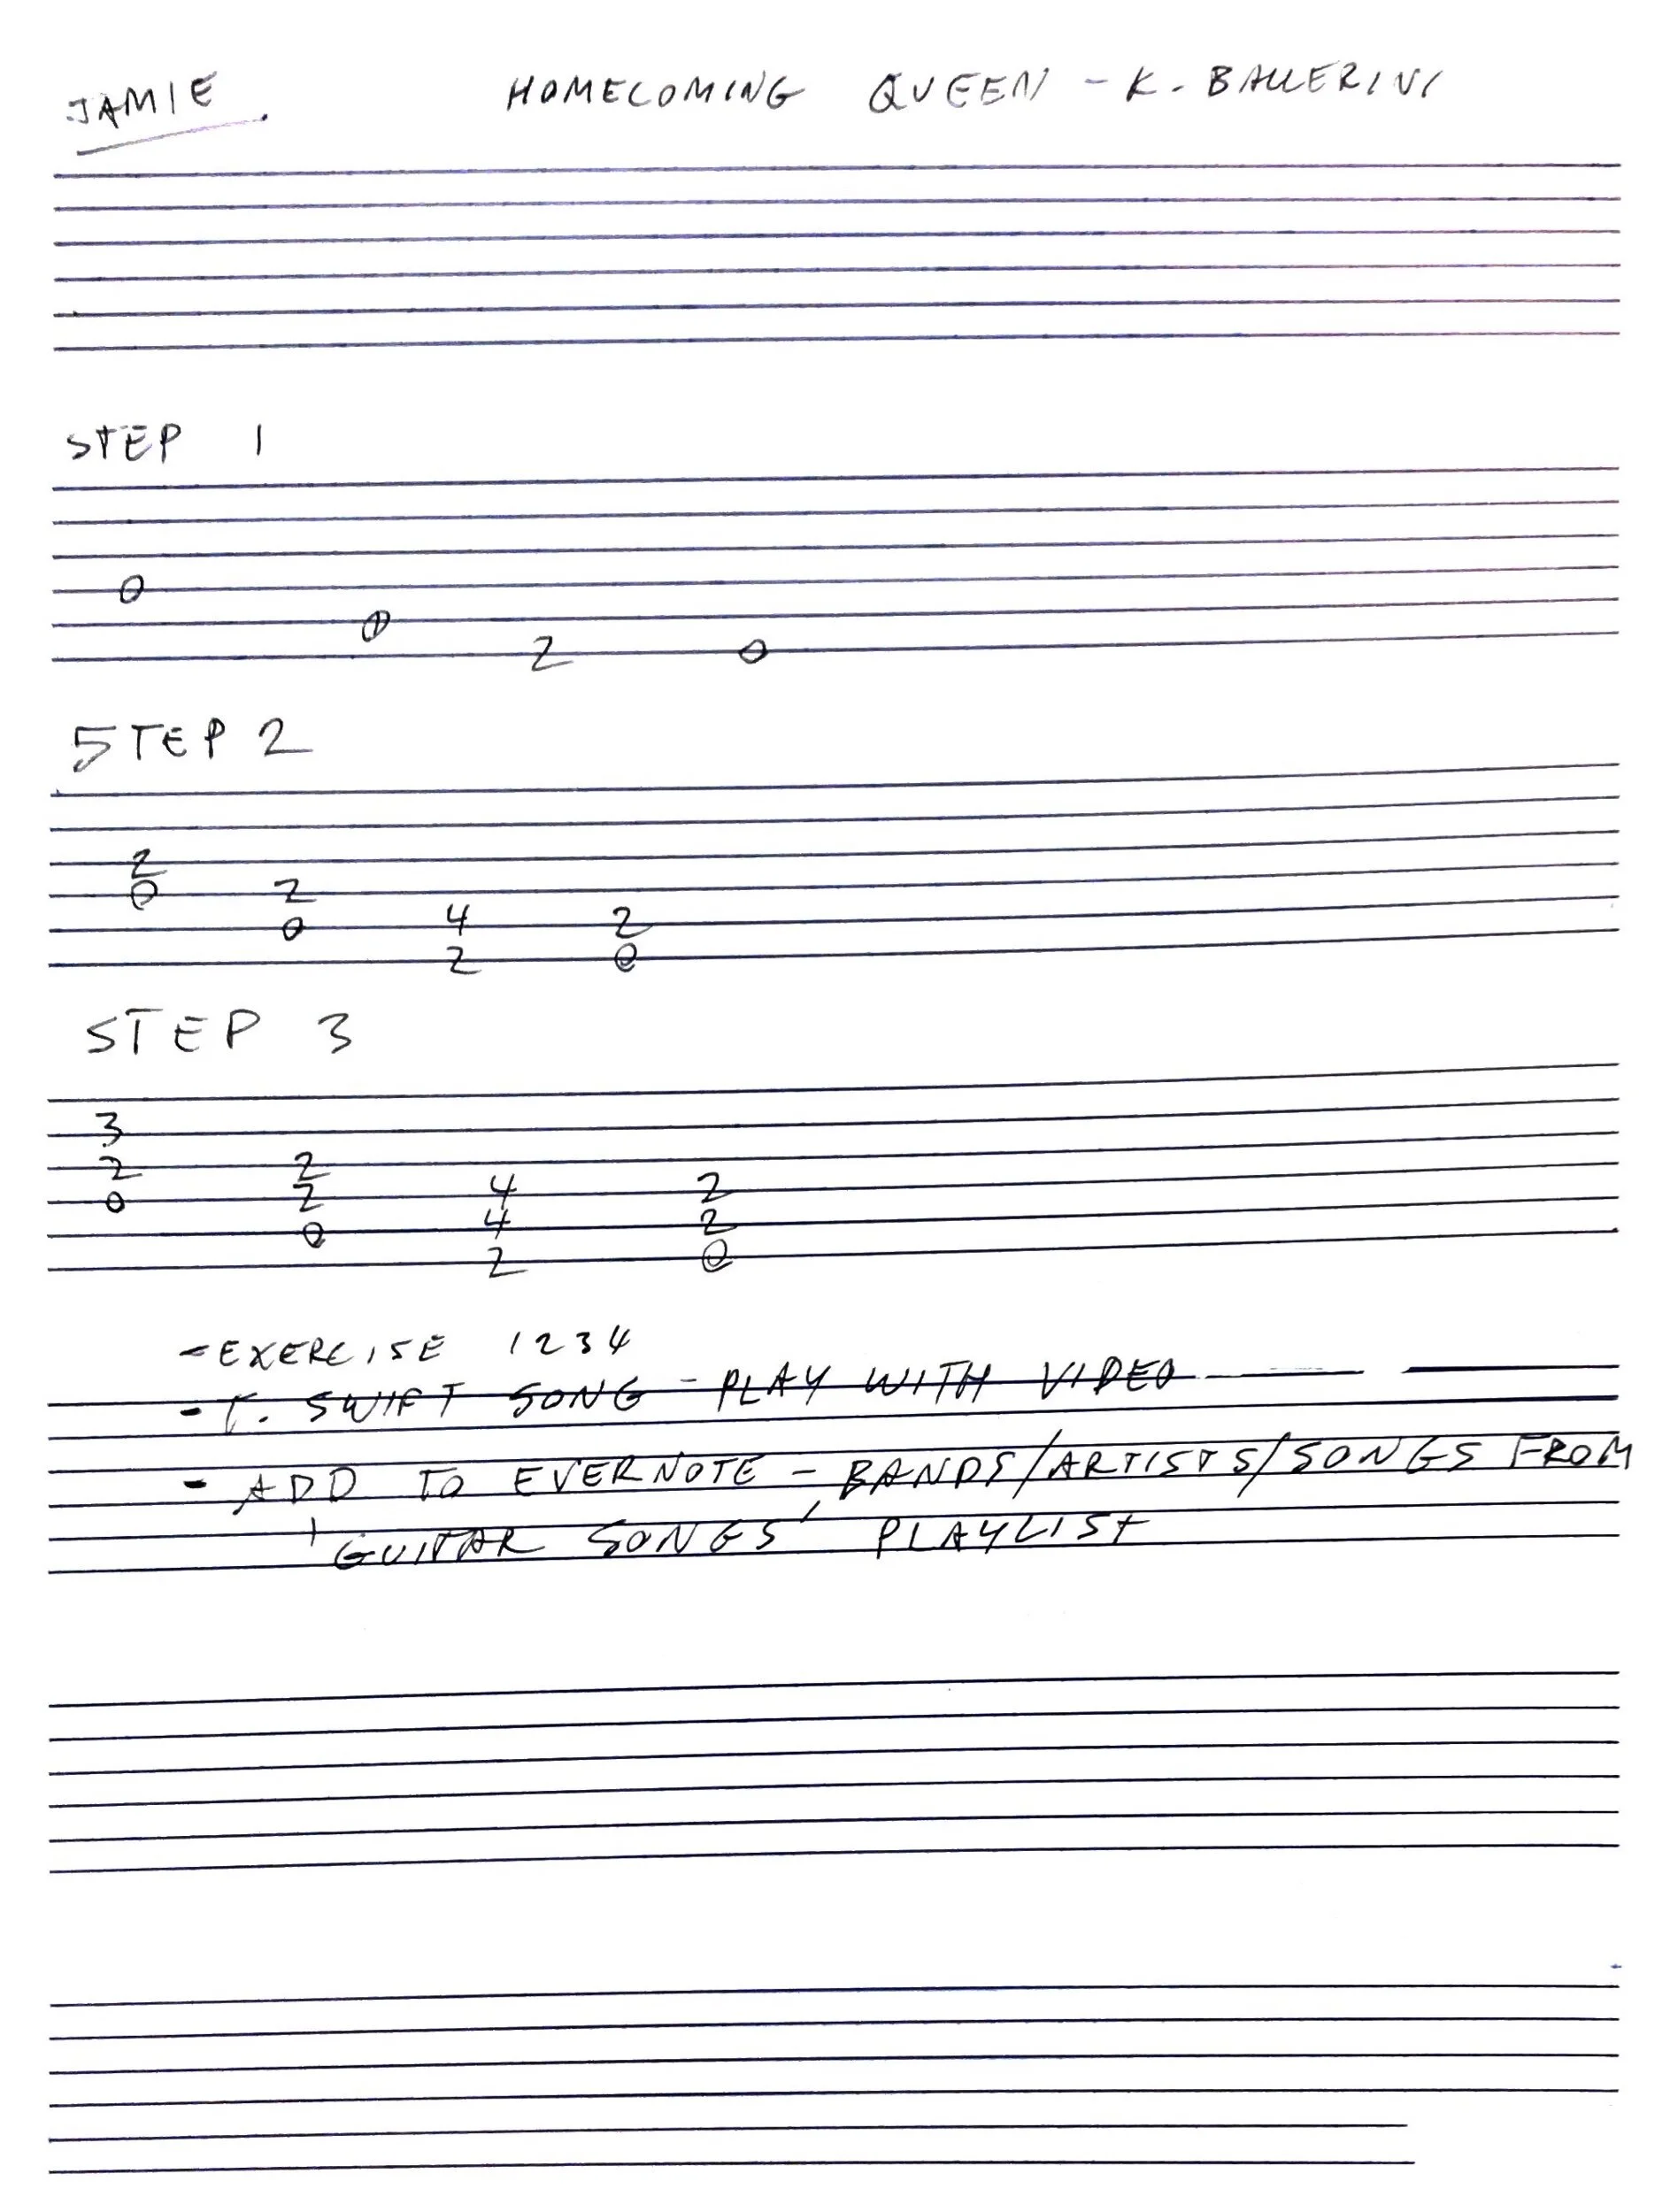 JAMIE HOMECOMING QUEEN - K. BALLERINI
STEP 1
0
0
2 0
STEP 2
2
0 2
0 4 2
2 0
STEP 3
3
2 2
0 2 4 2
0 4 2
2 0
- EXERCISE 1234
- T. SWIFT SONG - PLAY WITH VIDEO
- ADD TO EVERNOTE - BANDS/ARTISTS/SONGS FROM
'GUITAR SONGS' PLAYLIST